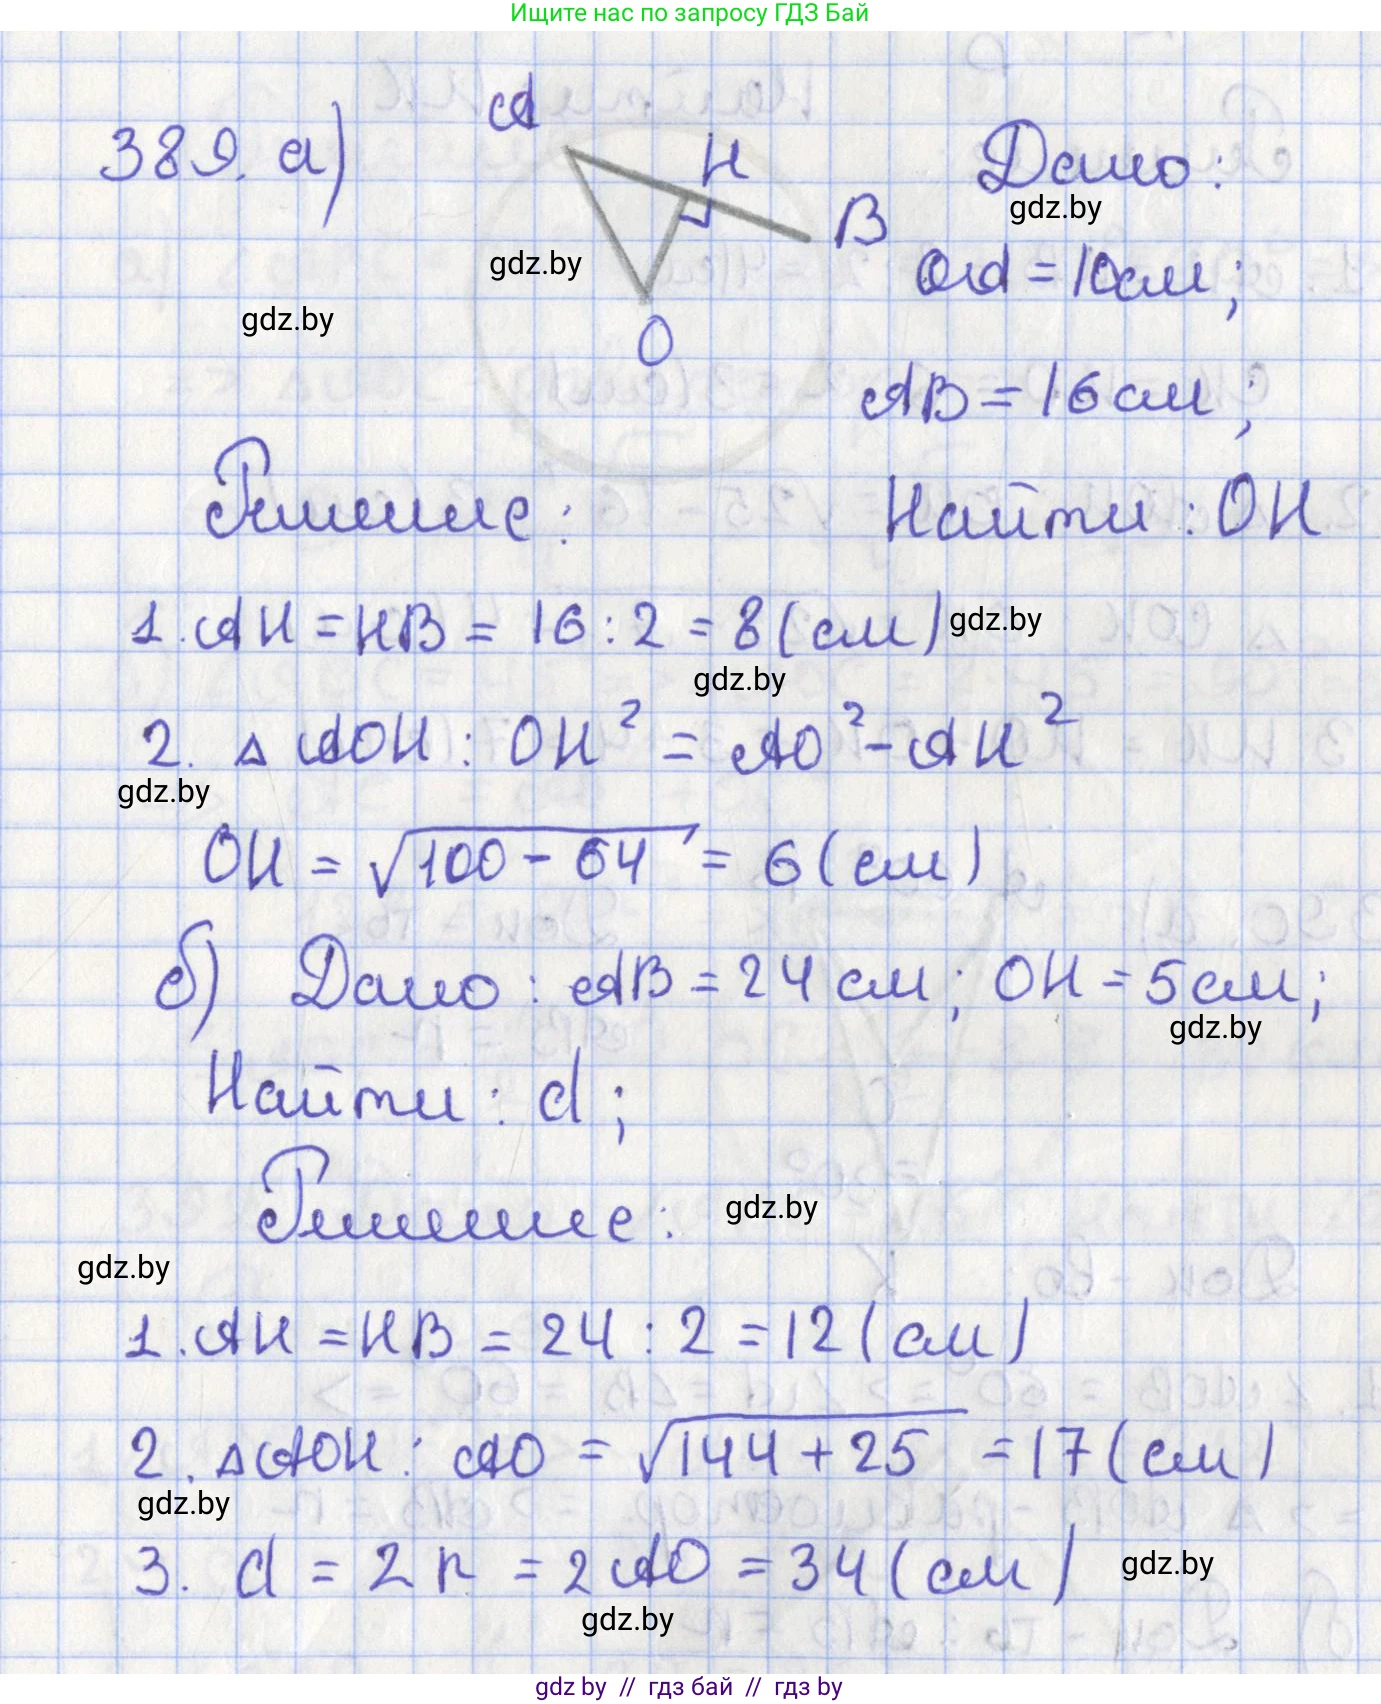 Ищите нас по запросу ГДЗ Бай
389. а)
A
H
B
O
Дано:
gdz.by
OA = 10см;
gdz.by
gdz.by
AB = 16см;
Решение:
Найти: OH
1. AH = HB = 16 : 2 = 8 (см)
gdz.by
gdz.by
2. △ AOH : OH² = AO² - AH²
gdz.by
OH = √100 - 64 = 6 (см)
б) Дано: AB = 24 см; OH = 5см;
gdz.by
Найти: d;
Решение:
gdz.by
gdz.by
1. AH = HB = 24 : 2 = 12 (см)
2. △AOH: AO = √144 + 25 = 17 (см)
gdz.by
3. d = 2r = 2AO = 34 (см)
gdz.by
gdz.by
gdz.by // гдз бай // гдз by